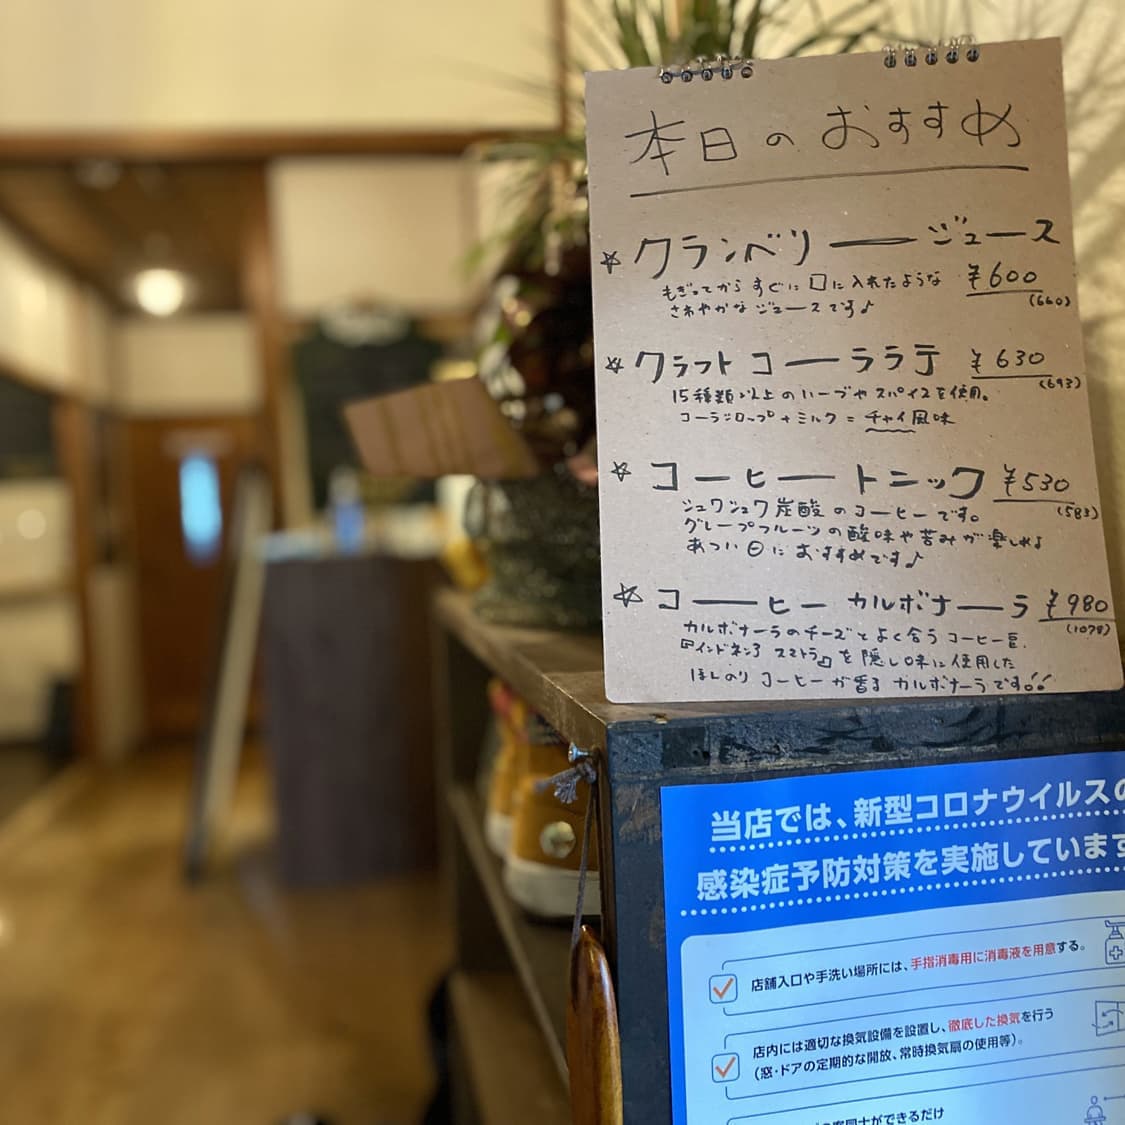 本日のおすすめ
☆ クランベリージュース ¥600
(660)
もぎってからすぐに口に入れたような
さわやかなジュースです♪
☆ クラフトコーララテ ¥630
(693)
15種類以上のハーブやスパイスを使用。
コーラシロップ+ミルク=チャイ風味
☆ コーヒートニック ¥530
(583)
シュワシュワ炭酸のコーヒーです。
グレープフルーツの酸味や苦みが楽しめ♪
あつい日におすすめです♪
☆ コーヒーカルボナーラ ¥980
(1078)
カルボナーラのチーズとよく合うコーヒー豆、
『インドネシア スマトラ』を隠し味に使用した
ほんのりコーヒーが香るカルボナーラです!!
当店では、新型コロナウイルスの
感染症予防対策を実施しています
店舗入口や手洗い場所には、手指消毒用に消毒液を用意する。
店内には適切な換気設備を設置し、徹底した換気を行う
(窓・ドアの定期的な開放、常時換気扇の使用等)。
客同士ができるだけ